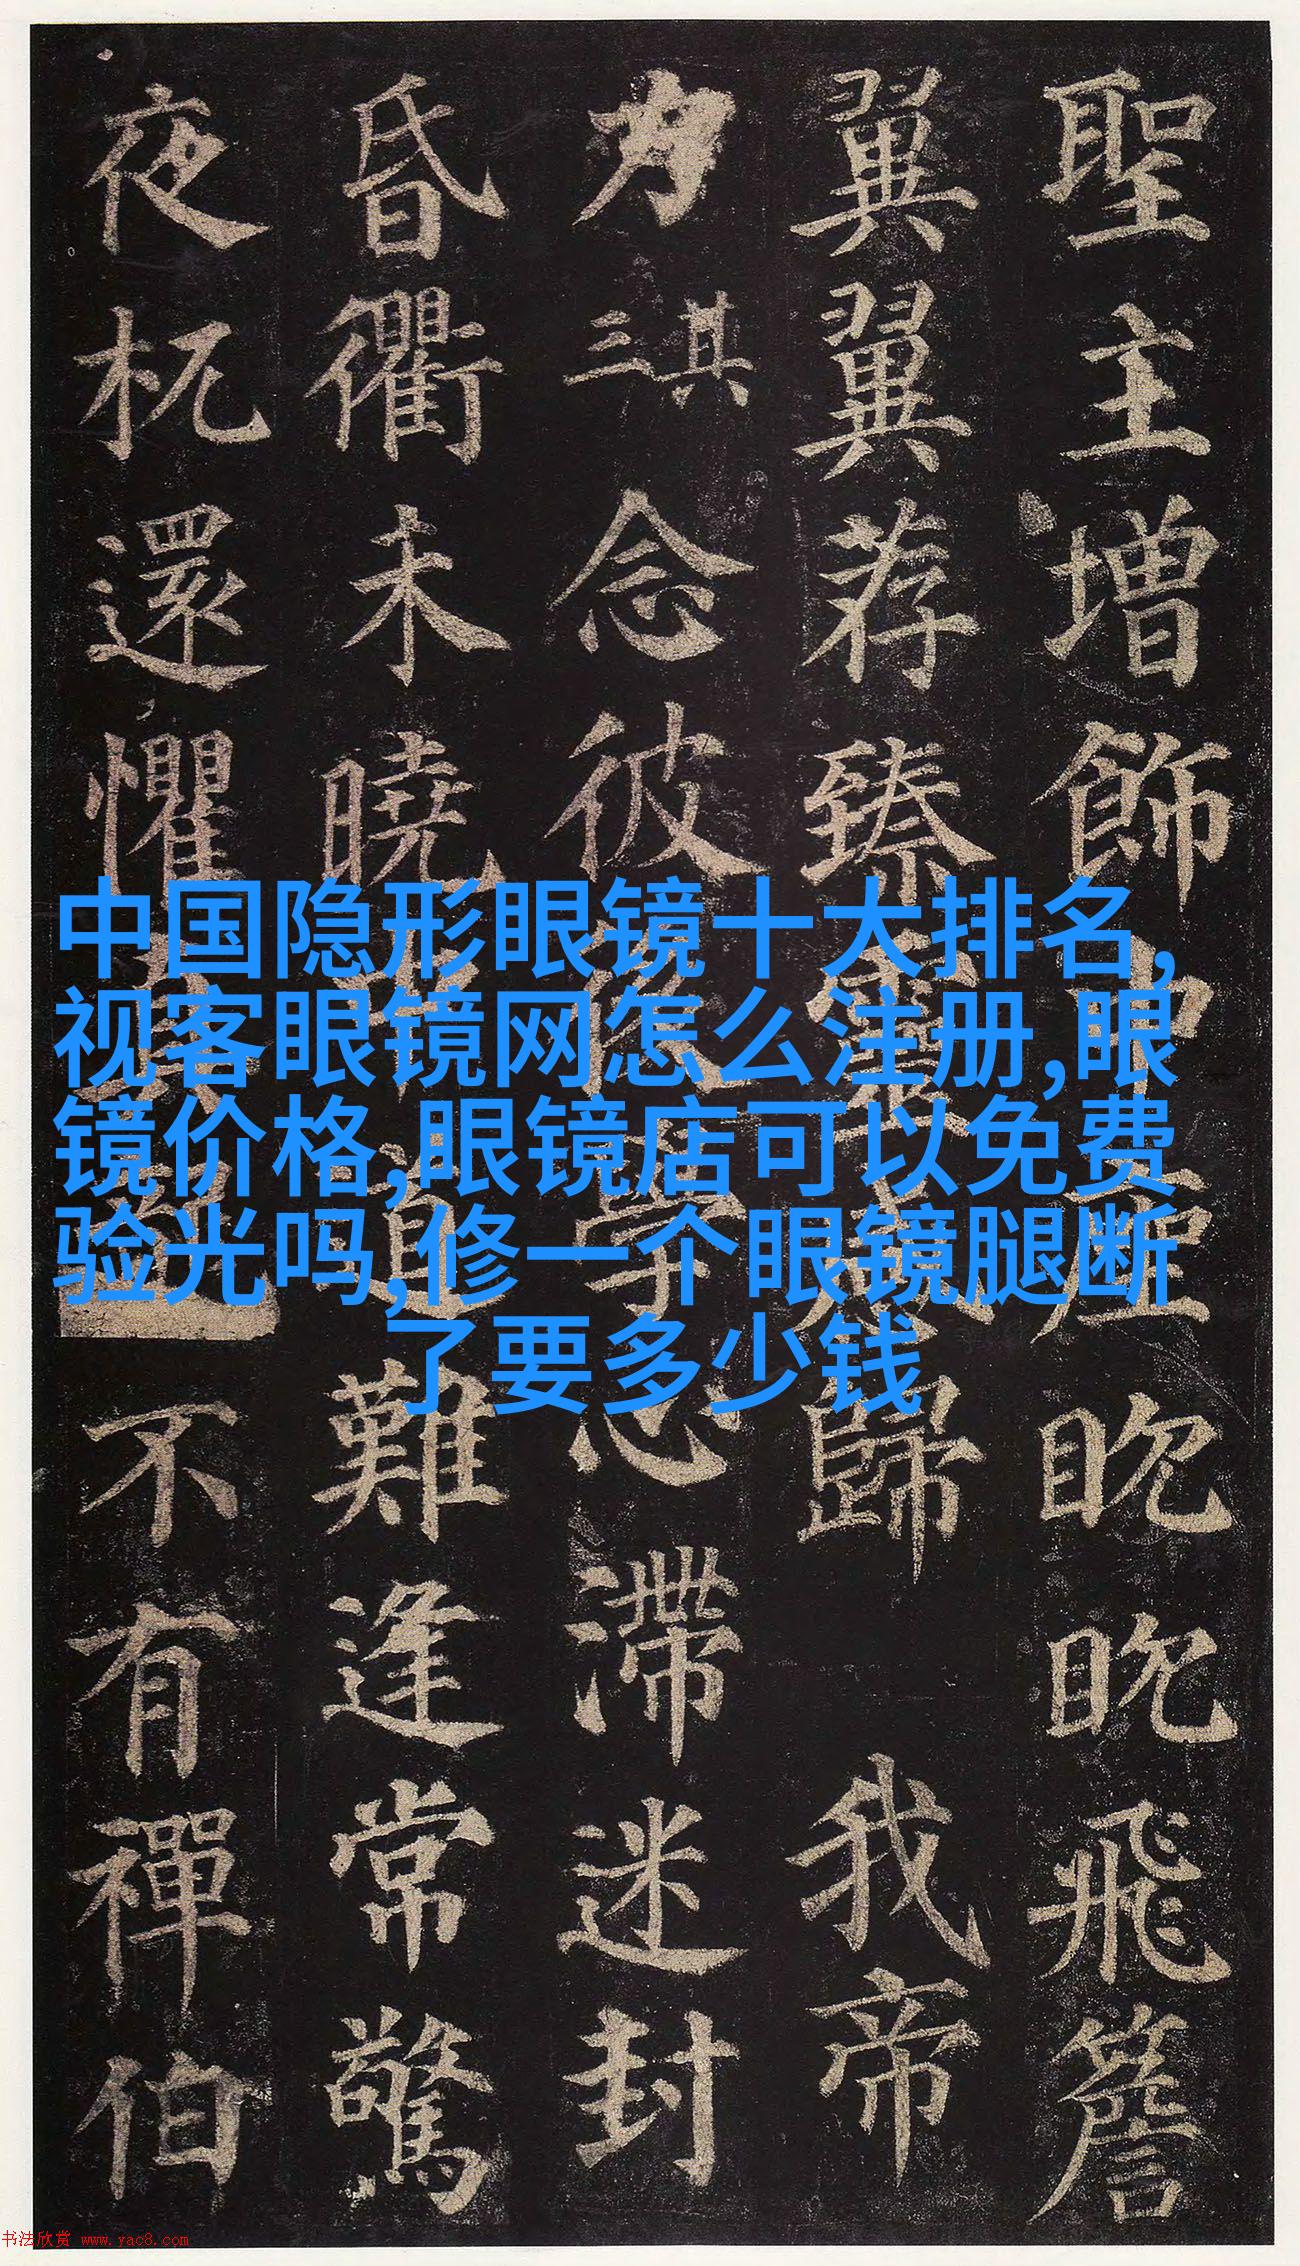 聖主增飾中座眈眈飛簷
翼翼荐臻歸我帝
力其三念彼學心滯迷封
昏衢未曉道難逢常驚
夜杌還懼不有禪伯
中国隐形眼镜十大排名,
视客眼镜网怎么注册,眼
镜价格,眼镜店可以免费
验光吗,修一个眼镜腿断
了要多少钱
书法欣赏 www.yac8.com